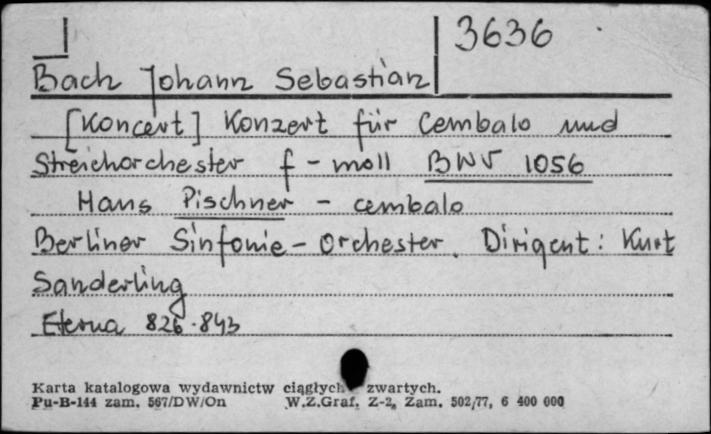 3636
Bach Johann Sebastian
[Koncert] Konzert für Cembalo und
Streichorchester f-moll BWV 1056
Hans Pischner - cembalo
Berliner Sinfonie-Orchester. Dirigent: Kurt
Sanderling
Eterna 826.843
Karta katalogowa wydawnictw ciągłych zwartych.
Pu-B-144 zam. 567/DW/On W.Z.Graf. Z-2, Zam. 502/77, 6 400 000